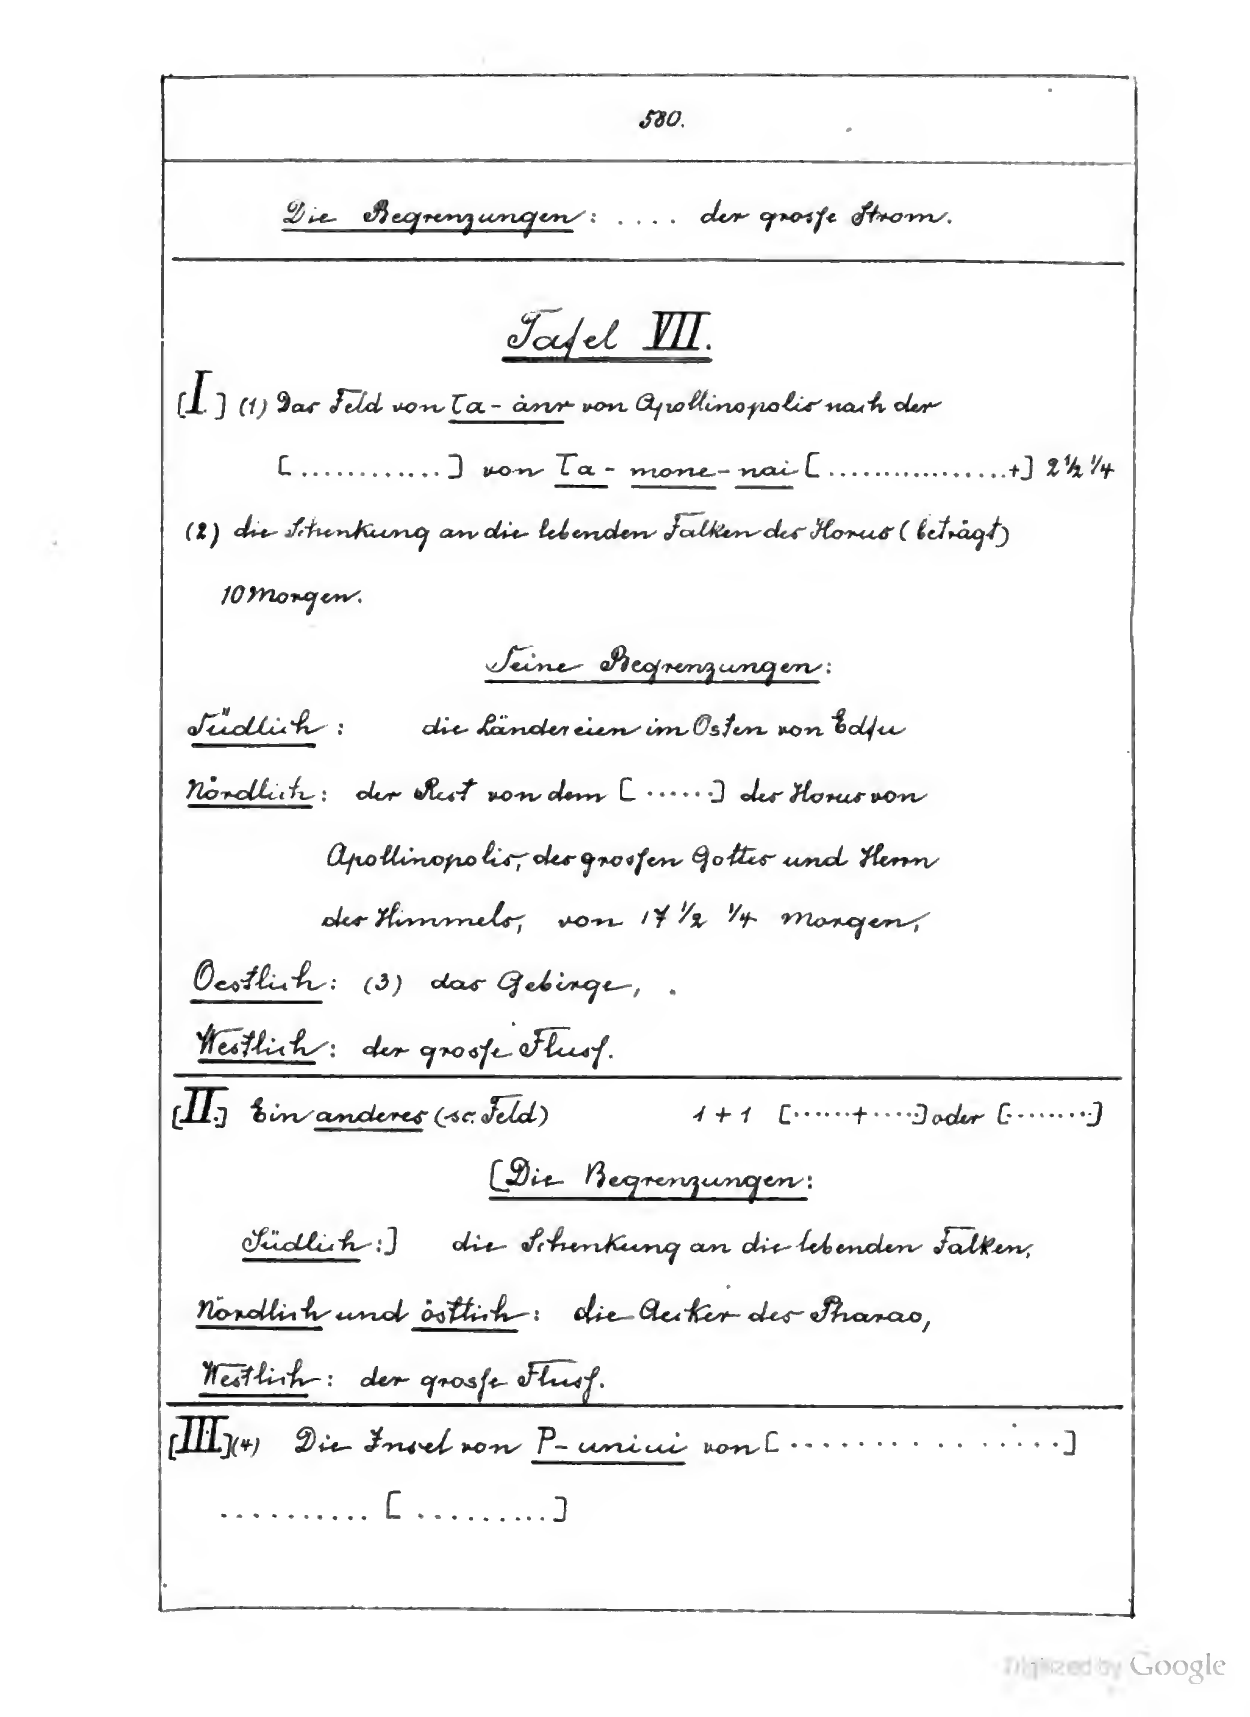 580.
Die Begrenzungen: .... der grosse Strom.
Tafel VII.
[I.] (1) Das Feld von Ta-ȧnr von Apollinopolis nach der
[............] von Ta-mone-nai [................+] 2 1/2 1/4
(2) die Schenkung an die lebenden Falken des Horus (beträgt)
10 Morgen.
Seine Begrenzungen:
Südlich: die Ländereien im Osten von Edfu
Nördlich: der Rest von dem [......] des Horus von
Apollinopolis, des grossen Gottes und Herrn
des Himmels, von 17 1/2 1/4 Morgen,
Oestlich: (3) das Gebirge,
Westlich: der grosse Fluss.
[II.] Ein anderes (sc. Feld) 1 + 1 [......+.....] oder [........]
[Die Begrenzungen:
Südlich:] die Schenkung an die lebenden Falken,
Nördlich und östlich: die Aecker des Pharao,
Westlich: der grosse Fluss.
[III.] (4) Die Insel von P- von [................]
.......... [.........]
Digitized by Google